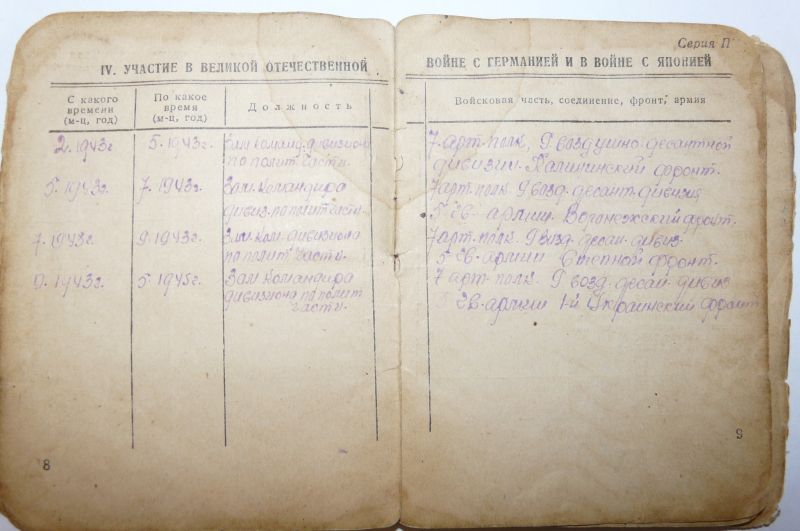 IV. УЧАСТИЕ В ВЕЛИКОЙ ОТЕЧЕСТВЕННОЙ
С какого времени (м-ц, год)
По какое время (м-ц, год)
Должность
2. 1943г. 5. 1943г. Зам. команд. дивизиона
по полит. части.
5. 1943г. 7. 1943г. Зам. командира
дивиз. по полит части.
7. 1943г. 9. 1943г. Зам. ком. дивизиона
по полит. части.
9. 1943г. 5. 1945г. Зам командира
дивизиона по полит
части.
8
Серия П
ВОЙНЕ С ГЕРМАНИЕЙ И В ВОЙНЕ С ЯПОНИЕЙ
Войсковая часть, соединение, фронт, армия
7 арт. полк, 9 воздушно-десантной
дивизии. Калининский фронт.
7 арт. полк. 9 возд. десант. дивизии
5 гв. армии. Воронежский фронт.
7 арт. полк. 9 возд. десан. дивиз.
5 гв. армии Степной фронт.
7 арт. полк. 9 возд. десан. дивиз
5 гв. армии 1-й Украинский фронт
9